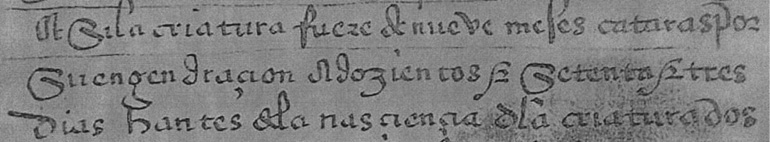 ¶ Si la criatura fuere de nueve meses cataras por
Su engendraçion a dozientos & Setenta & tres
dias hantes de la nasçiençia dla criatura dos